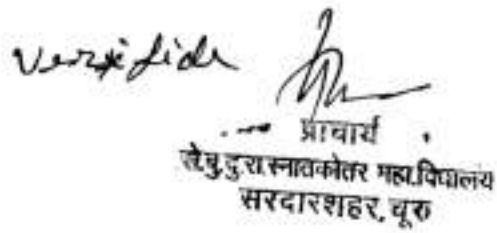 Verifide
प्राचार्य
से.बु.दु.रा.स्नातकोतर महा.विद्यालय
सरदारशहर, चूरु